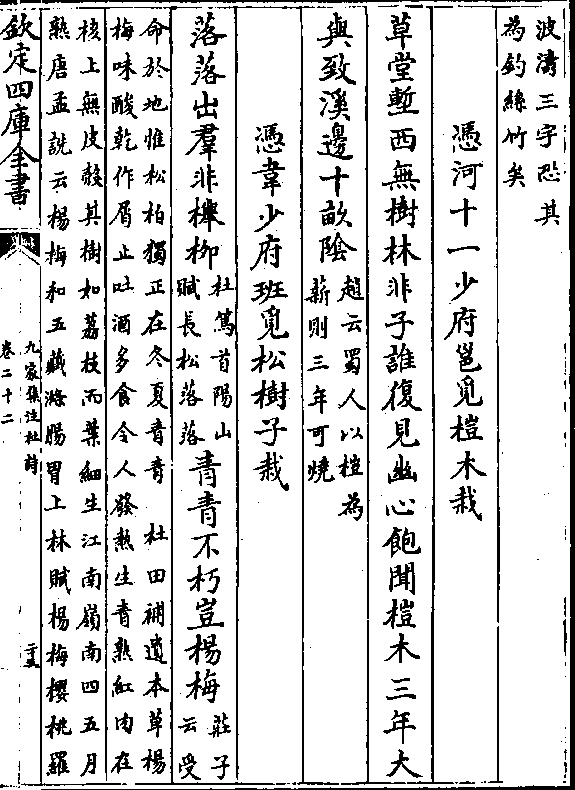 波濤三字恐其
為釣絲竹矣
憑河十一少府邕覓榿木栽
草堂塹西無樹林非子誰復見幽心飽聞榿木三年大
與致溪邊十畝陰
趙云蜀人以榿為
薪則三年可燒
憑韋少府班覓松樹子栽
落落出羣非櫸柳
杜篤首陽山
賦長松落落
青青不朽豈楊梅
莊子
云受
命於地惟松柏獨正在冬夏青青　杜田補遺本草楊
梅味酸乾作屑止吐酒多食令人發熱生青熟紅肉在
核上無皮殼其樹如荔枝而葉細生江南嶺南四五月
熟唐孟詵云楊梅和五藏滌腸胃上林賦楊梅櫻桃羅
欽定四庫全書
九家集注杜詩
卷二十二